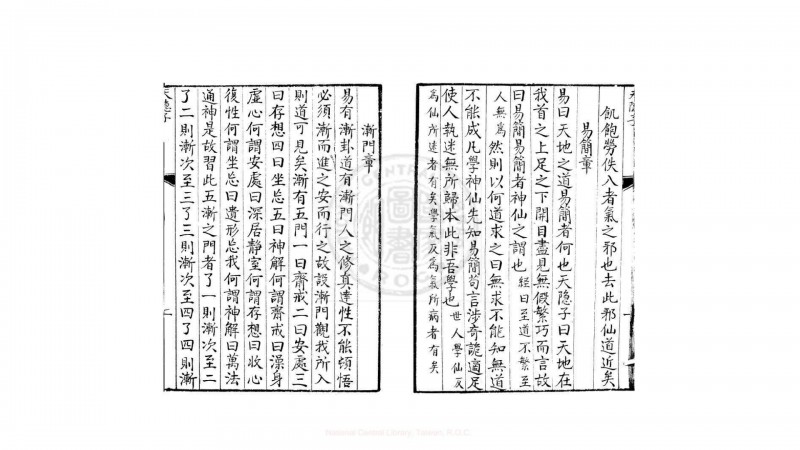 飢飽勞佚入者氣之邪也去此邪仙道近矣
易簡章
易曰天地之道易簡者何也天隐子曰天地在
我首之上足之下開目盡見無假繁巧而言故
曰易簡易簡者神仙之謂也 經曰至道不繁至
人無為 然則以何道求之曰無求不能知無道
不能成凡學神仙先知易簡苟言涉奇詭適足
使人執迷無所歸本此非吾學也 世人學仙反
為仙所迷者有矣學氣反為氣所病者有矣
漸門章
易有漸卦道有漸門人之修真達性不能頓悟
必須漸而進之安而行之故設漸門觀我所入
則道可見矣漸有五門一曰齋戒二曰安處三
曰存想四曰坐忘五曰神解何謂齋戒曰澡身
虛心何謂安處曰深居靜室何謂存想曰收心
復性何謂坐忘曰遺形忘我何謂神解曰萬法
通神是故習此五漸之門者了一則漸次至二
了二則漸次至三了三則漸次至四了四則漸
National Central Library, Taiwan, R.O.C.